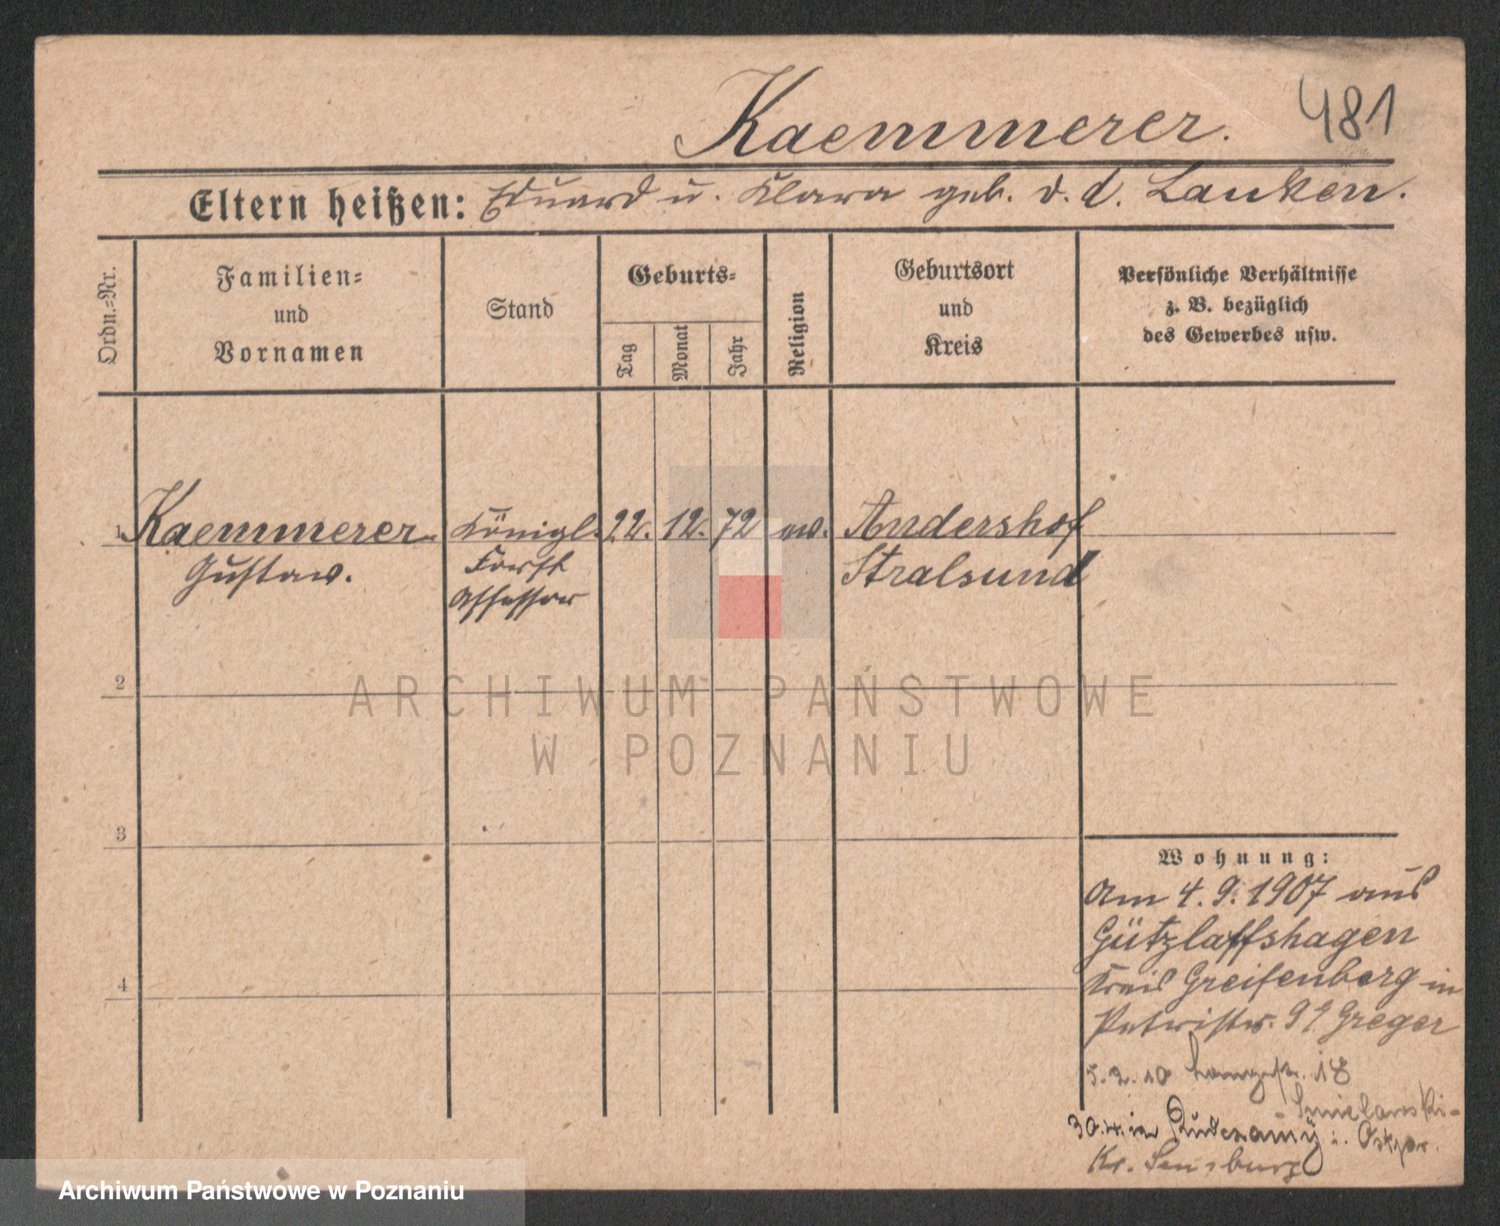 Kaemmerer. 481
Eltern heißen: Eduard u. Klara geb. v. d. Lanken.
Ordn.-Nr.
Familien-
und
Vornamen
Stand
Geburts-
Tag
Monat
Jahr
Religion
Geburtsort
und
Kreis
Persönliche Verhältnisse
z. B. bezüglich
des Gewerbes usw.
1 Kaemmerer Königl. 22. 12. 72 ev. Andershof
Gustav. Forst Stralsund
Assessor
2
ARCHIWUM PAŃSTWOWE
W POZNANIU
3
4
Wohnung:
Am 4. 9. 1907 aus
Gützlaffshagen
Kreis Greifenberg in
Petristr. Greger
5. 2. 10 Langestr. 18
Smielanski
30. in Rudczanny i. Ostpr.
Kr. Sensburg
Archiwum Państwowe w Poznaniu